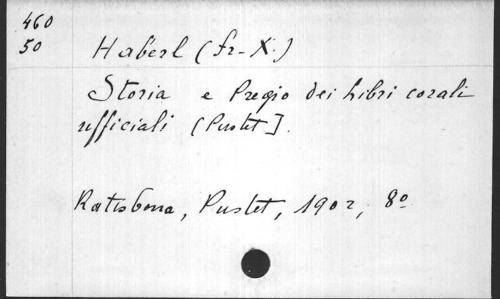 460
50
Haberl (Fr-X.)
Storia e Pregio dei libri corali
ufficiali (Pustet].
Ratisbona, Pustet, 1902, 8º